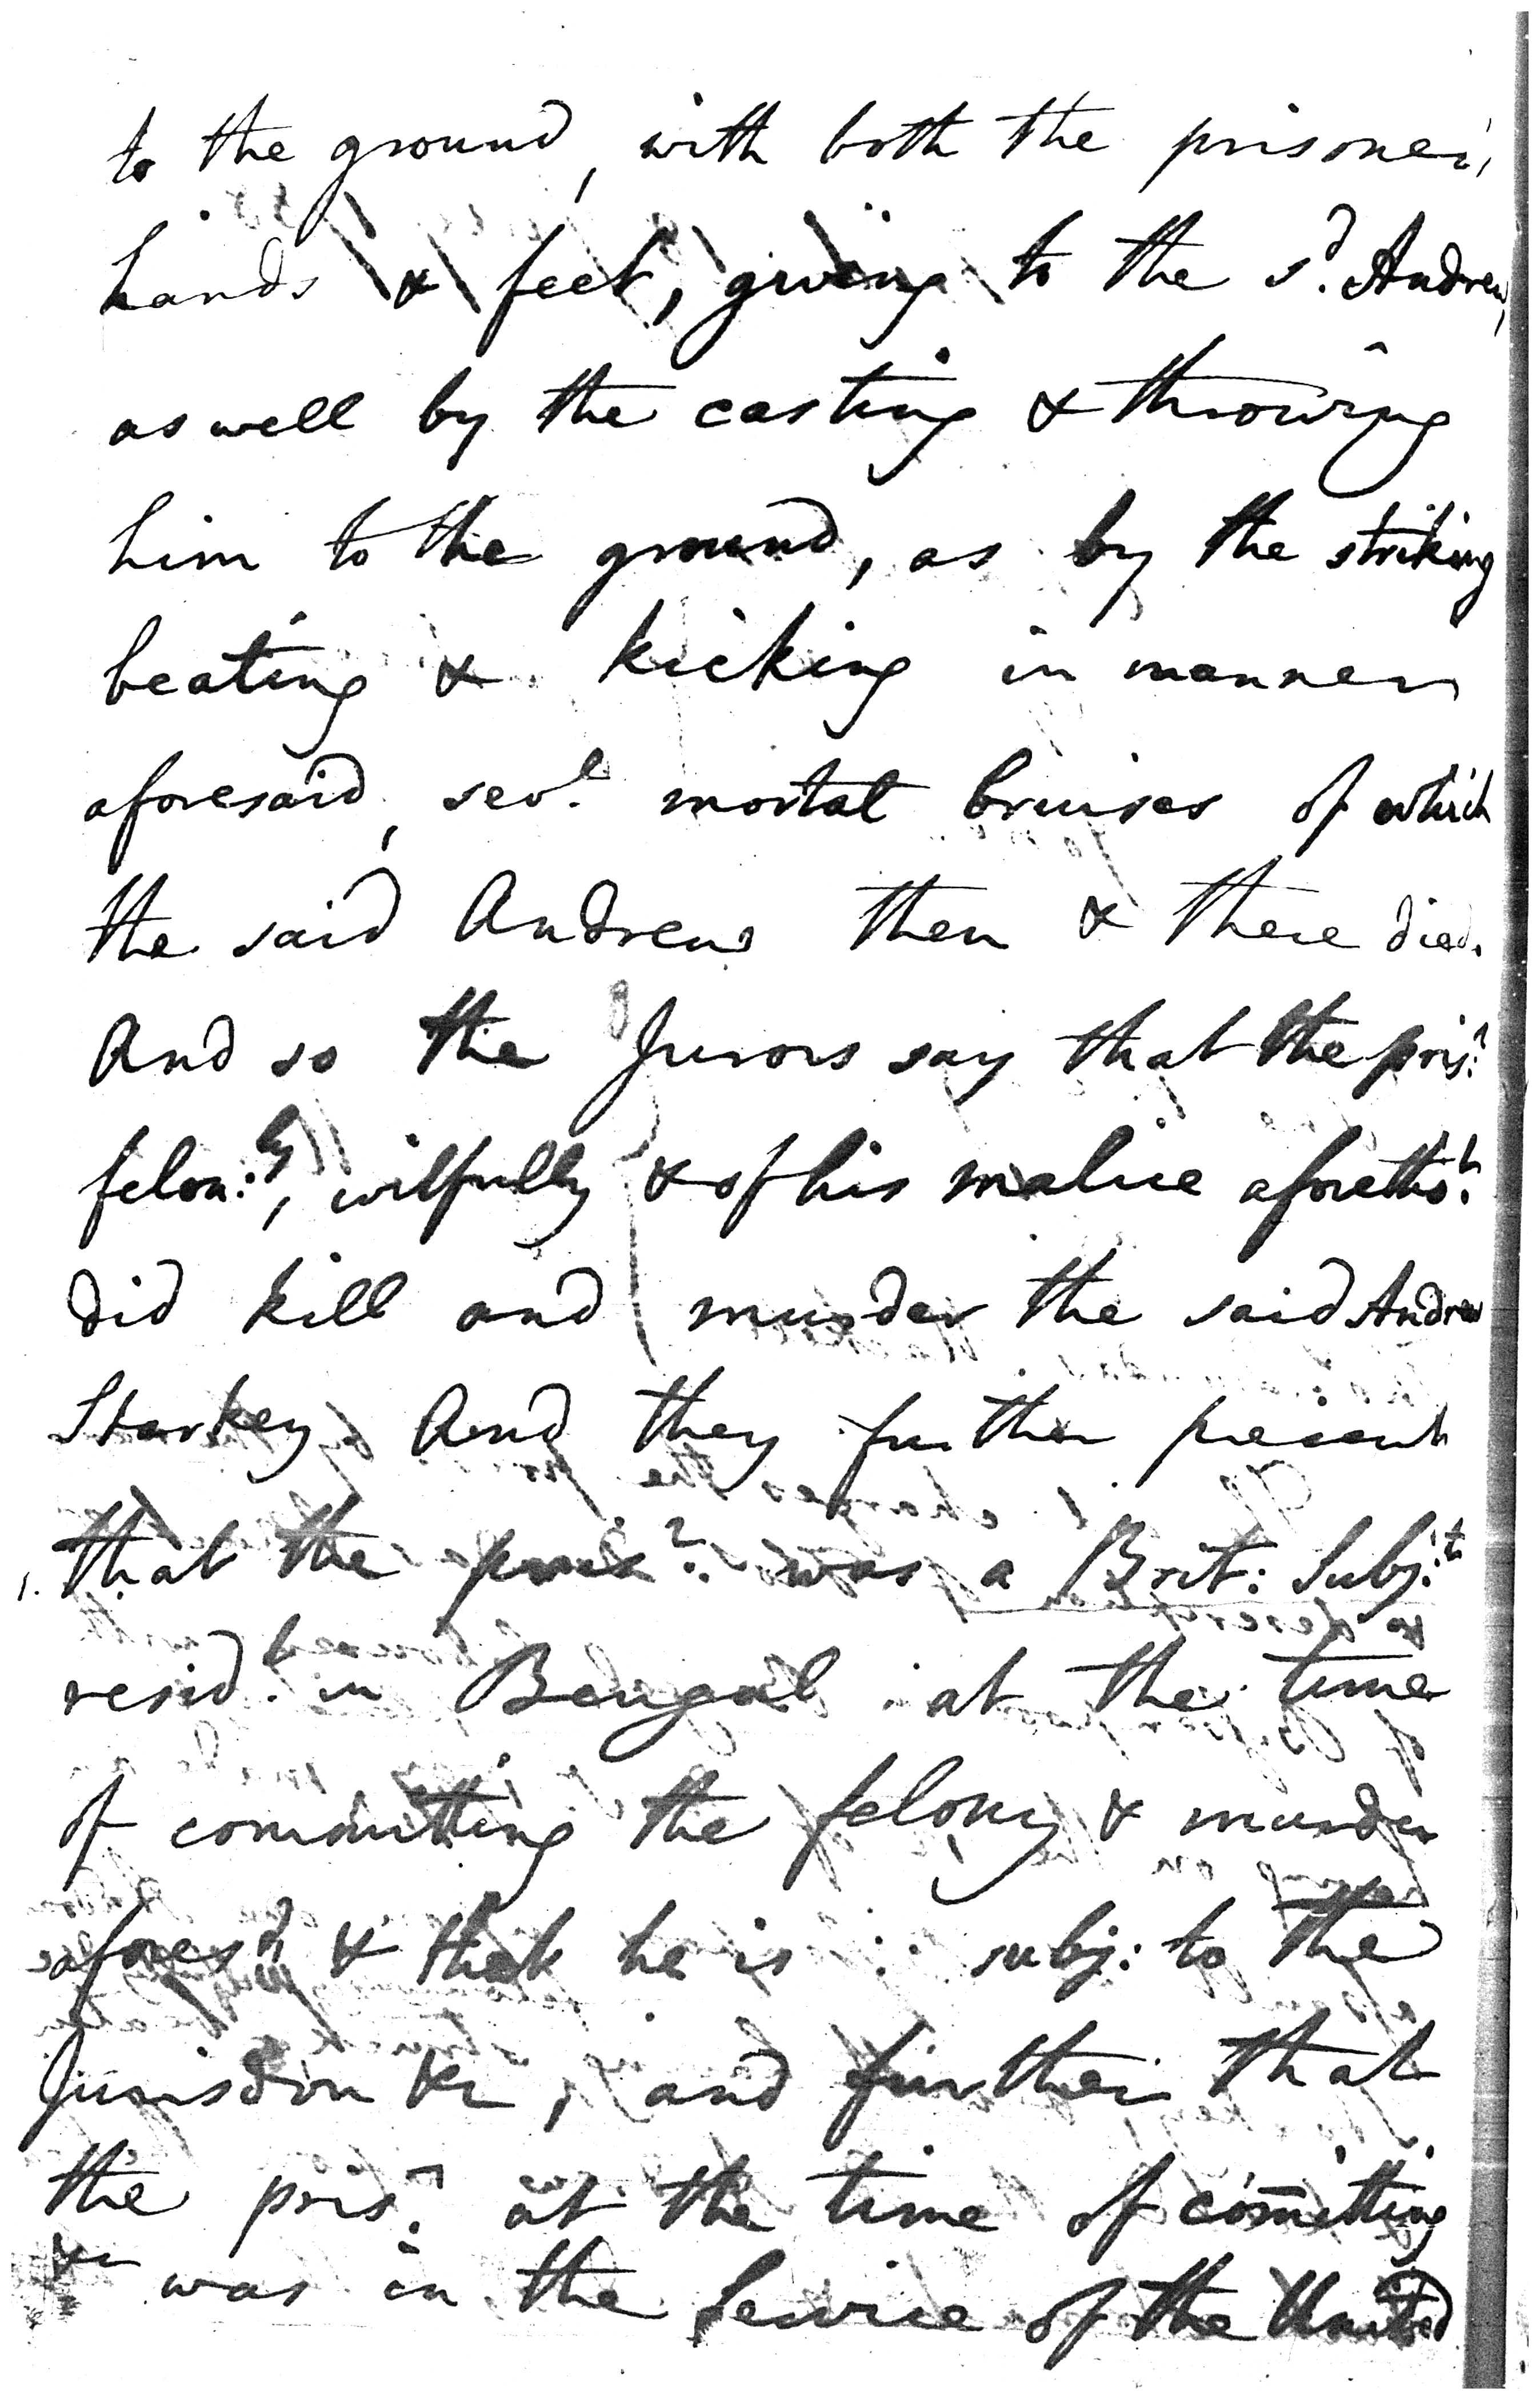 to the ground, with both the prisoner's
hands & feet, giving to the s.d Andrew,
as well by the casting & throwing
him to the ground, as by the striking
beating & kicking in manner
aforesaid, sev.l mortal bruises of which
the said Andrew then & there died.
And so the Jurors say that the pris.r
felon:ly, wilfully & of his malice afoретho.t
did kill and murder the said Andrew
Starkey And they further present
that the pris.r was a Brit: Subj:t
resid.t in Bengal at the time
of committing the felony & murder
afores.d & that he is subj: to the
Jurisdon &c, and further that
the pris.r at the time of comitting
&c was in the Service of the United